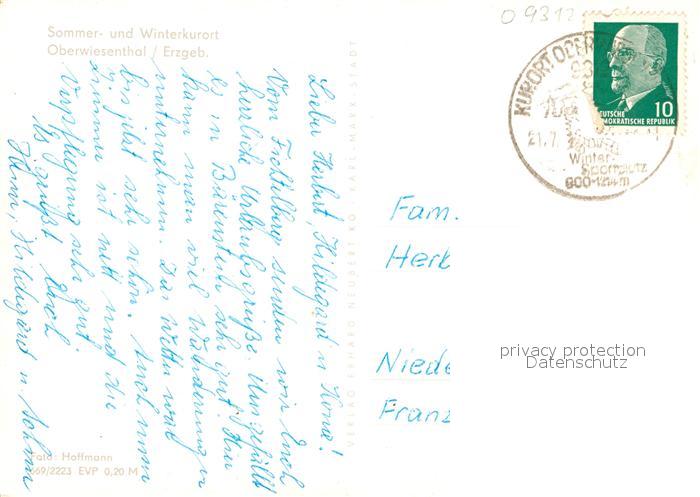 Sommer- und Winterkurort
Oberwiesenthal / Erzgeb.
Lieber Herbert, Hildegard u.
Vom Fichtelberg senden wir Euch
herrliche Urlaubsgrüße. Uns gefällt
es in Bärenstein sehr gut. Hier
kann man viel Wanderungen
unternehmen. Das Wetter war
bis jetzt sehr schön. Auch unser
Zimmer ist nett und die
Verpflegung sehr gut.
Es grüßt Euch
Hildegard u.
Foto: Hoffmann
669/2223 EVP 0,20 M
VERLAG ERHARD NEUBERT KG KARL-MARX-STADT
09312
KURORT OBER
21.7.
Winter-
Sportplatz
900-1214m
10
DEUTSCHE
DEMOKRATISCHE REPUBLIK
Fam.
Herb
Niede
Franz
privacy protection
Datenschutz